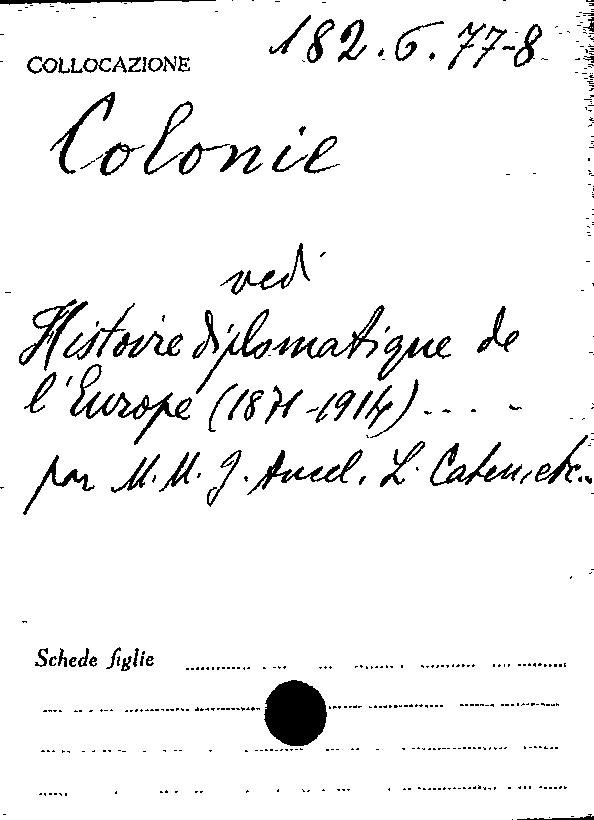 COLLOCAZIONE 182.6.77-8
Colonie
vedi
Histoire diplomatique de
l'Europe (1871-1914) ....
par M.M. J. Ancel, L. Cahen, etc..
Schede figlie